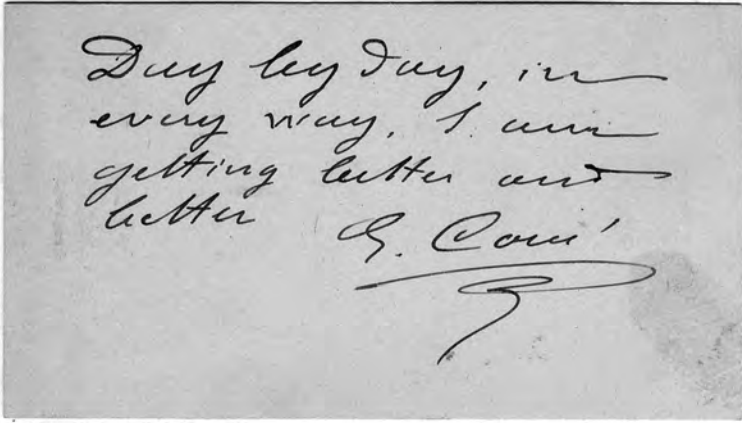 Day by Day, in
every way, I am
getting better and
better E. Coué